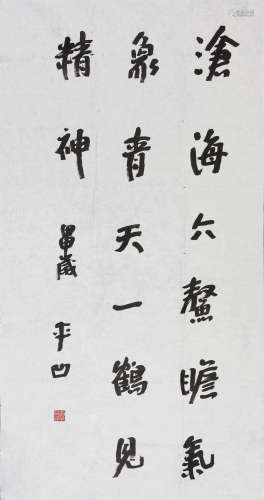 滄海六鰲瞻氣
象青天一鶴見
精神
歲 平凹